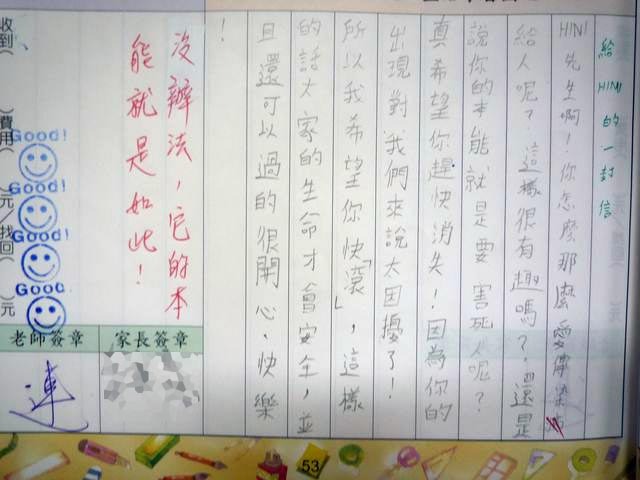 給H1N1的一封信
H1N1先生啊!你怎麼那麼愛傳染
給人呢?這樣很有趣嗎?還是
說你的本能就是要害死人呢?
真希望你趕快消失!因為你的
出現對我們來說太困擾了!
所以我希望你快「滾」,這樣
的話大家的生命才會安全,並
且還可以過的很開心、快樂
!
沒辦法,它的本
能就是如此!
收到( )費用( )元/找回( )元
Good!
Good!
Good!
Good!
家長簽章
老師簽章
連
53